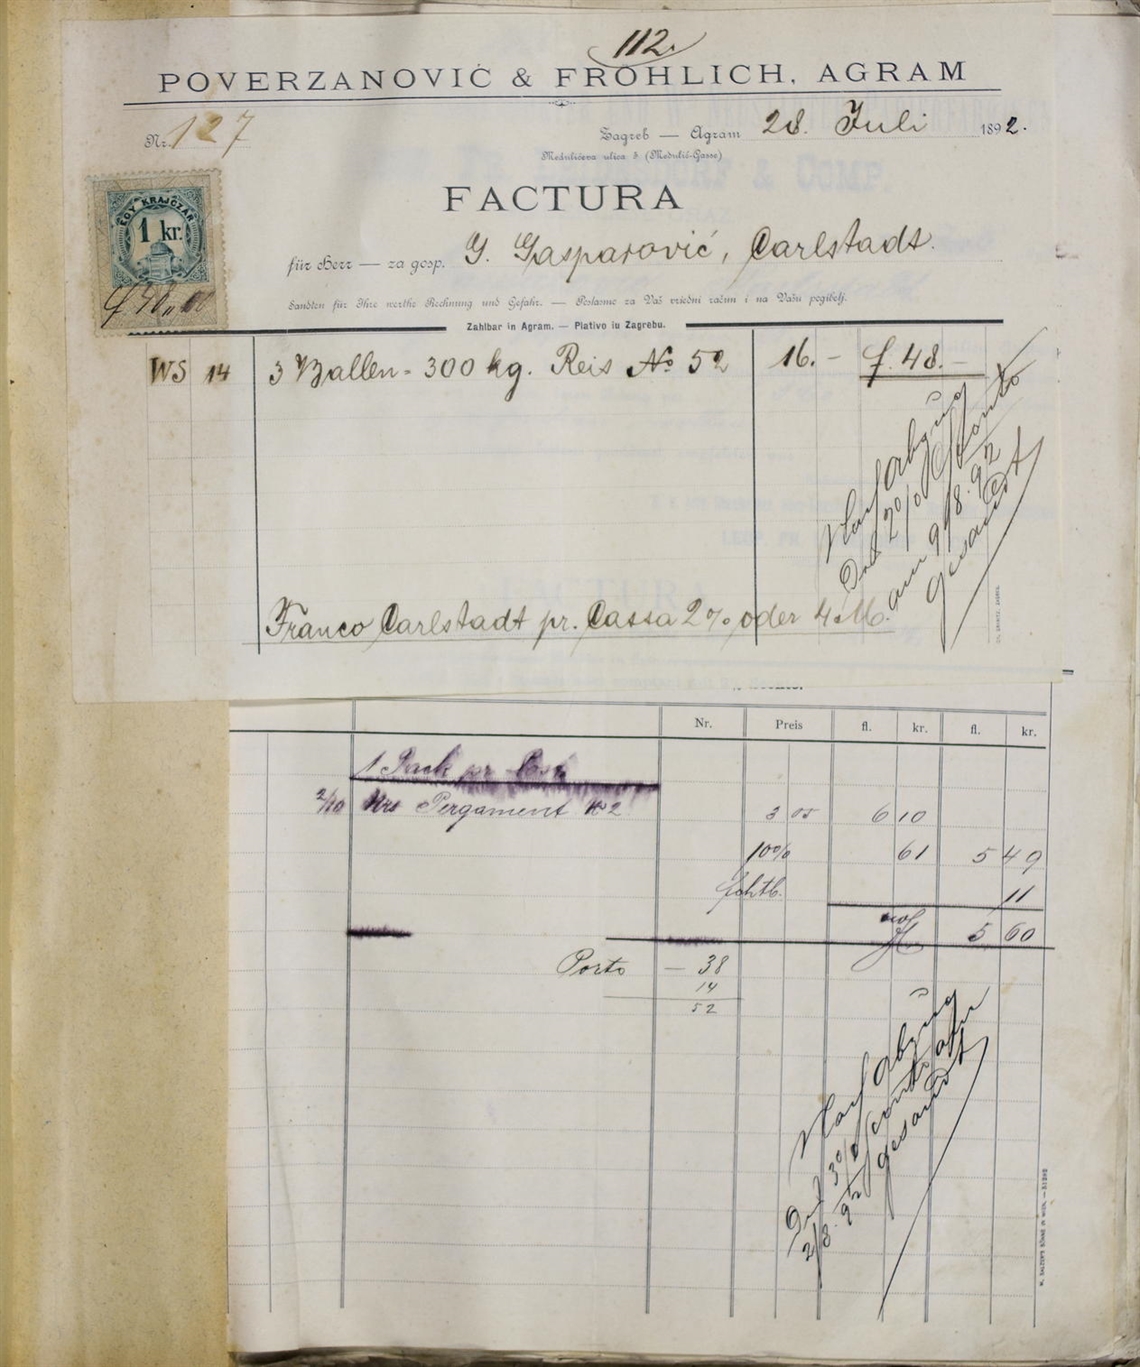 112.
POVERZANOVIĆ & FRÖHLICH, AGRAM
Nr. 127
Zagreb — Agram 28. Juli 1892.
Medulićeva ulica 3 (Medulić-Gasse)
FACTURA
EGY KRAJCZÁR
1 kr.
für Herr — za gosp. G. Gasparović, Carlstadt.
Sandten für Ihre werthe Rechnung und Gefahr. — Poslasmo za Vaš vriedni račun i na Vašu pogibelj.
Zahlbar in Agram. — Plativo iu Zagrebu.
WS 14 3 Ballen = 300 kg. Reis No 52 16.— f. 48.—
Nach Abzug
2% Sconto
am 9/8. 92
gesandt
Franco Carlstadt pr. Cassa 2% oder 4 M.
Nr. Preis fl. kr. fl. kr.
1 Pack pr. Post
2/10 Pergament No 2 3 05 6 10
10% 61 5 49
11
5 60
Porto — 38
14
52
Nach Abzug
3% Sconto am
2/8. 92 gesandt